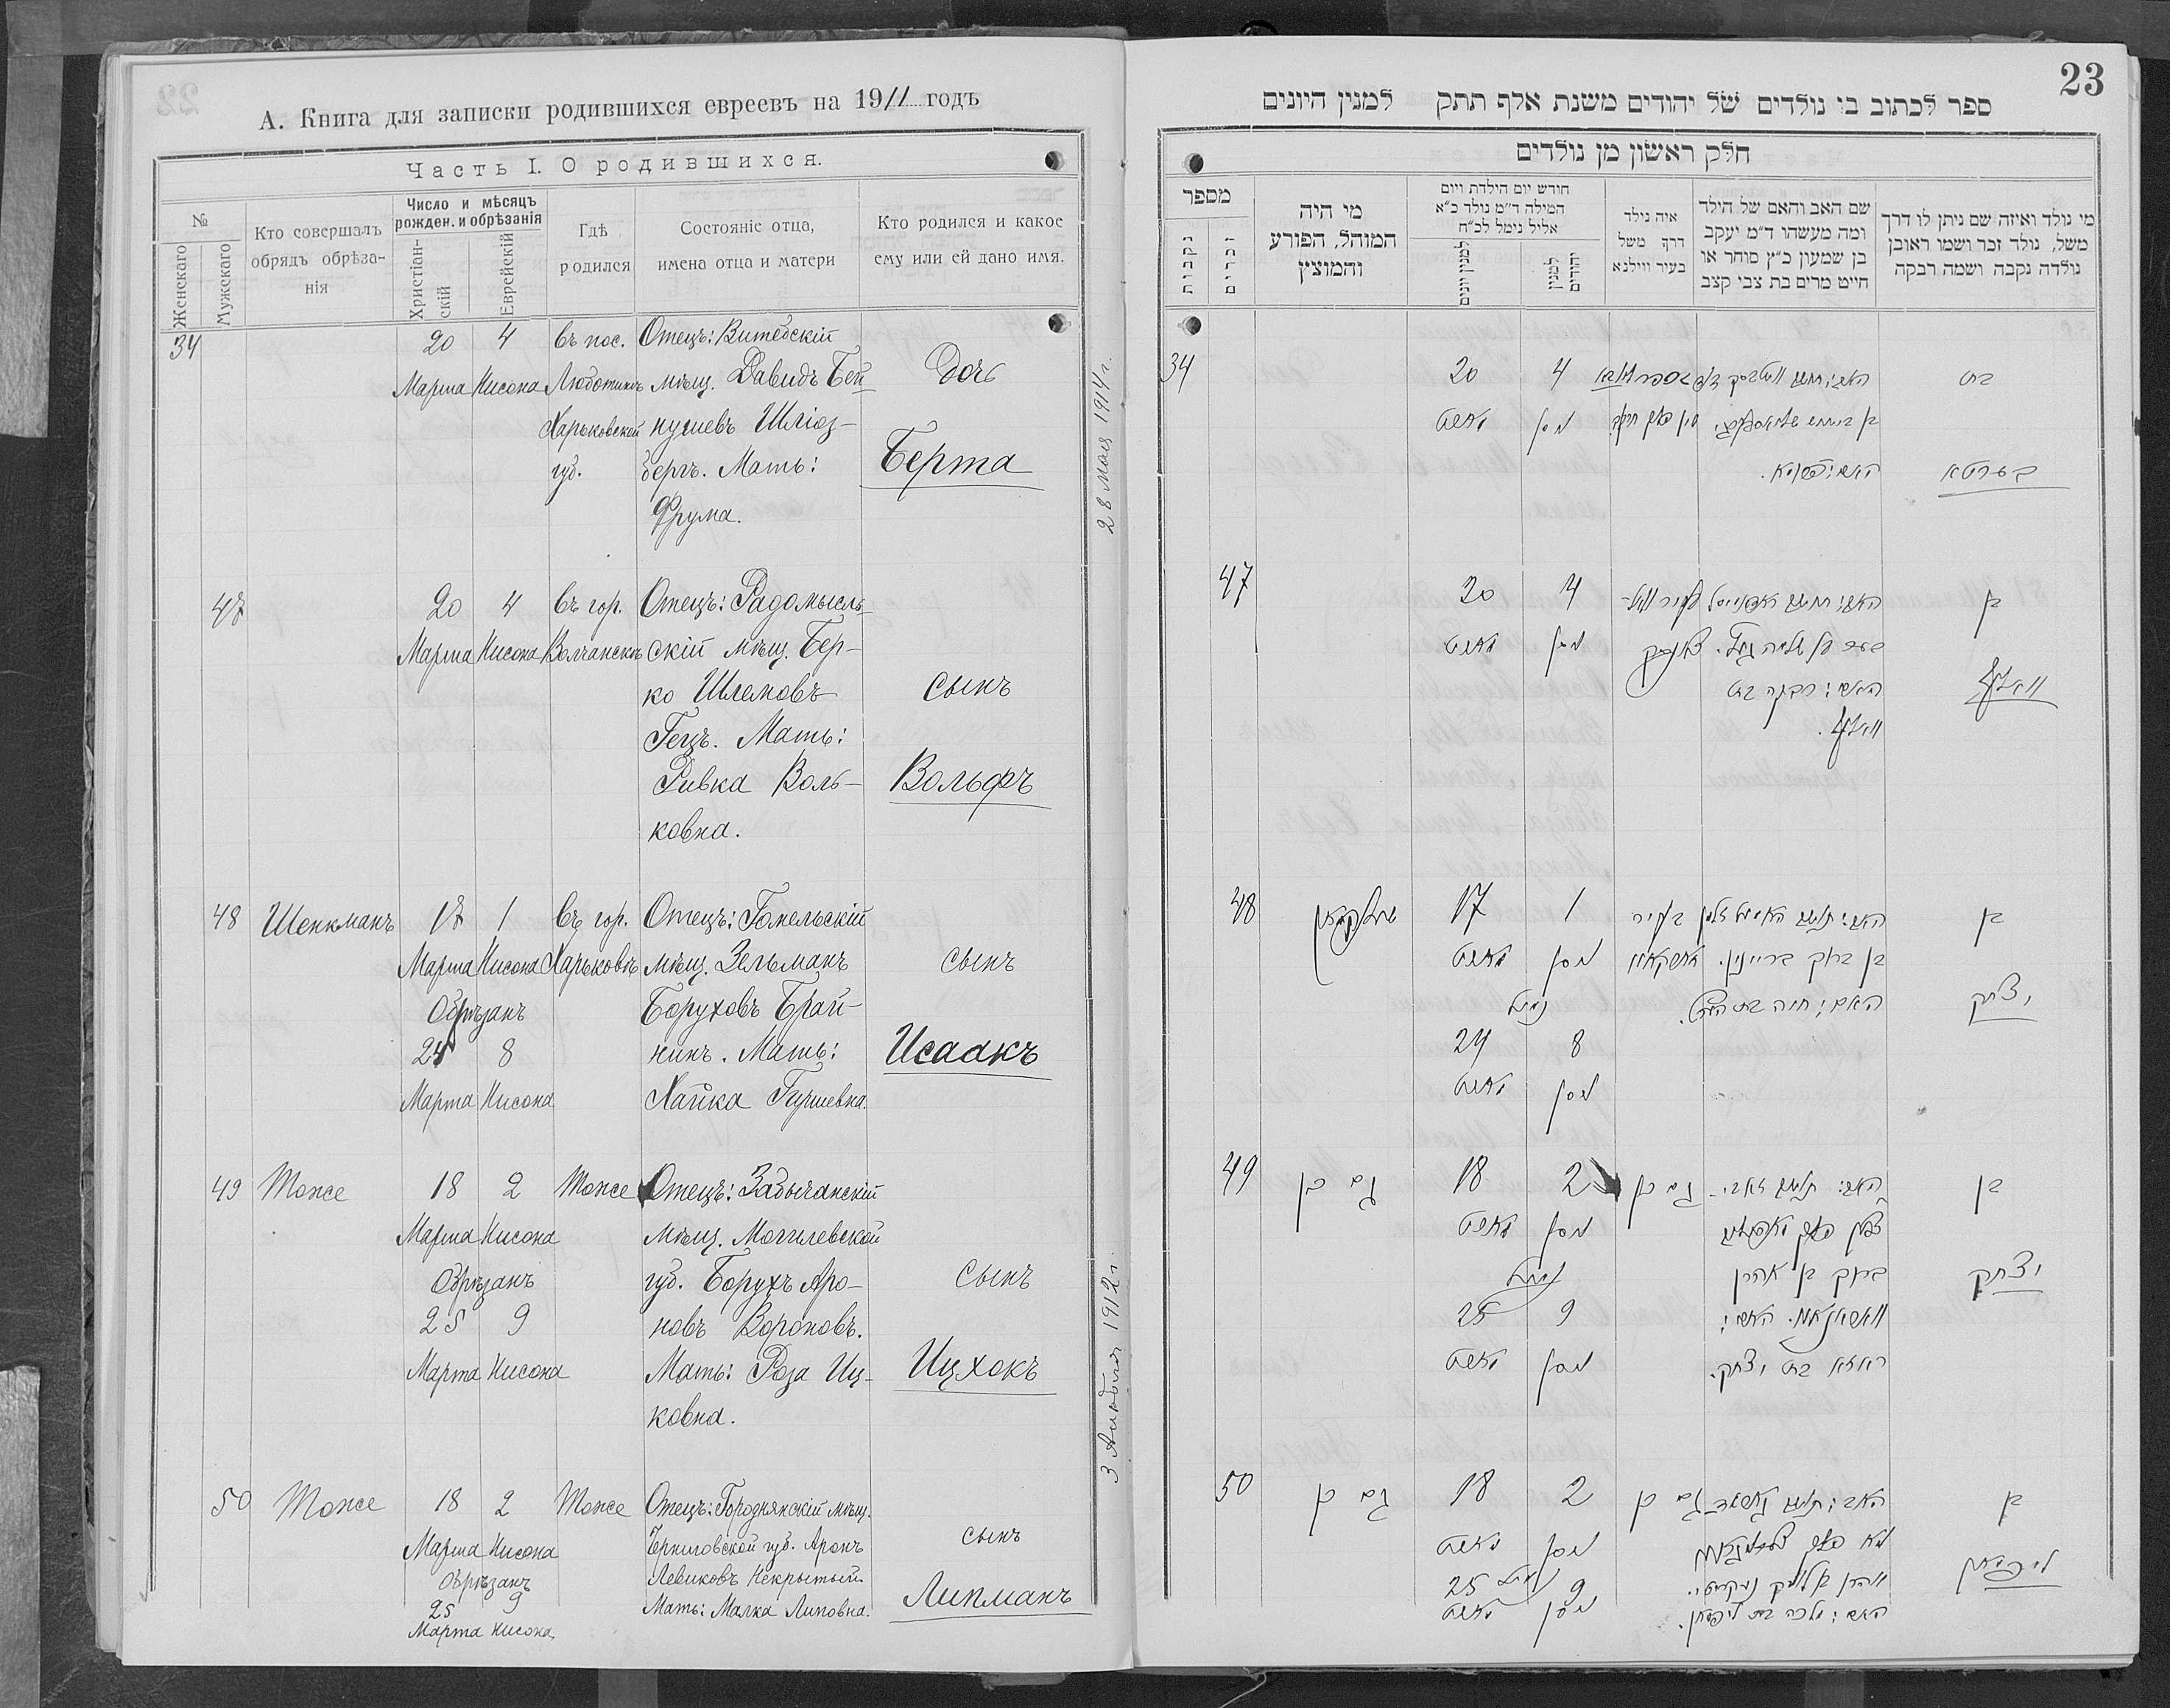 А. Книга для записки родившихся евреевъ на 1911 годъ
Часть I. О родившихся.
№
Женскаго
Мужескаго
Кто совершалъ
обрядъ обрѣза-
нія
Число и мѣсяцъ
рожден. и обрѣзанія
Христіан-
скій
Еврейскій
Гдѣ
родился
Состояніе отца,
имена отца и матери
Кто родился и какое
ему или ей дано имя.
34
20 4
Марта Нисона
въ пос.
Люботинѣ
Харьковской
губ.
Отецъ: Витебскій
мѣщ. Давидъ Бей-
нушевъ Шліоз-
бергъ. Мать:
Фрума.
Дочь
Берта
28 Мая 1914 г.
47
20 4
Марта Нисона
въ гор.
Волчанскѣ
Отецъ: Радомысль-
скій мѣщ. Бер-
ко Шлемовъ
Гецъ. Мать:
Ривка Воль-
ковна.
сынъ
Вольфъ
48
Шенкманъ
17 1
Марта Нисона
Обрѣзанъ
24 8
Марта Нисона
въ гор.
Харьковѣ
Отецъ: Гомельскій
мѣщ. Зельманъ
Боруховъ Брай-
нинъ. Мать:
Хайка Гиршевна.
сынъ
Исаакъ
49
Тоже
18 2
Марта Нисона
Обрѣзанъ
25 9
Марта Нисона
Тоже
Отецъ: Забычанскій
мѣщ. Могилевской
губ. Борухъ Аро-
новъ Вороновъ.
Мать: Роза Иц-
ковна.
сынъ
Ицхокъ
3 1912 г.
50
Тоже
18 2
Марта Нисона
Обрѣзанъ
25 9
Марта Нисона
Тоже
Отецъ: Городнянскій мѣщ.
Черниговской губ. Аронъ
Левиковъ Некрытый
Мать: Малка Липовна.
сынъ
Липманъ
23
ספר לכתוב בו נולדים של יהודים משנת אלף תתק למנין היונים
חלק ראשון מן נולדים
מספר
נקבות
זכרים
מי היה
המוהל, הפורע
והמוצץ
חודש יום הילדת ויום
המילה ד״מ נולד כ״א
אליל נימל לכ״ח
למנין יונים
למנין
יהודים
איה נילד
דרך משל
בעיר ווילנא
שם האב והאם של הילד
ומה מעשהו ד״מ יעקב
בן שמעון כ״ץ סוחר או
חייט מרים בת צבי קצב
מי נולד ואיזה שם ניתן לו דרך
משל, נולד זכר ושמו ראובן
נולדה נקבה ושמה רבקה
34
20 4
מארט ניסן
בת
בערטא
47
20 4
מארט ניסן
האם: רבקה בת
וואלף.
בן
וואלף
48
שענקמאן
17 1
מארט ניסן
נימול
24 8
מארט ניסן
בן ברוך בריינין.
בן
יצחק
49
גם כן
18 2
מארט ניסן
נימול
25 9
מארט ניסן
גם כן
ברוך בן אהרן
ראזא בת יצחק.
בן
יצחק
50
גם כן
18 2
מארט ניסן
נימול
25 9
מארט ניסן
גם כן
האם: מלכה בת ליפמאן.
בן
ליפמאן